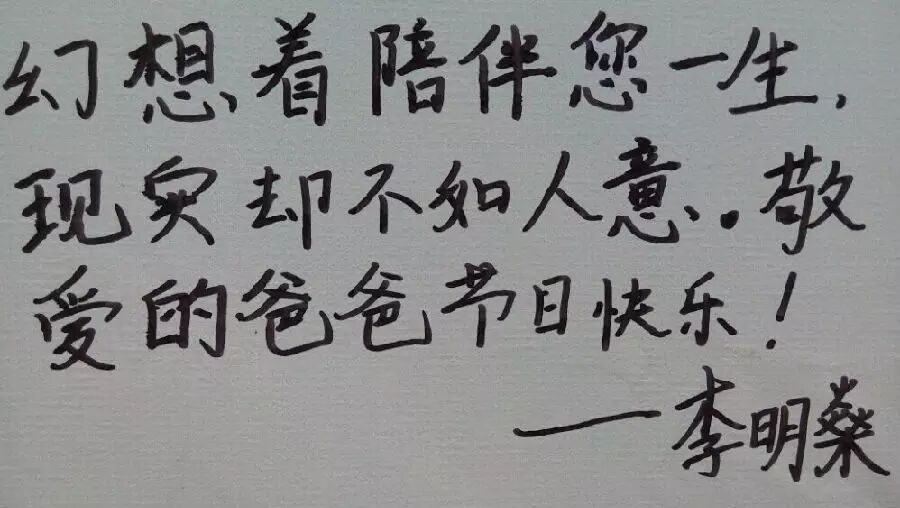 幻想着陪伴您一生,
现实却不如人意。敬
爱的爸爸节日快乐!
——李明燊